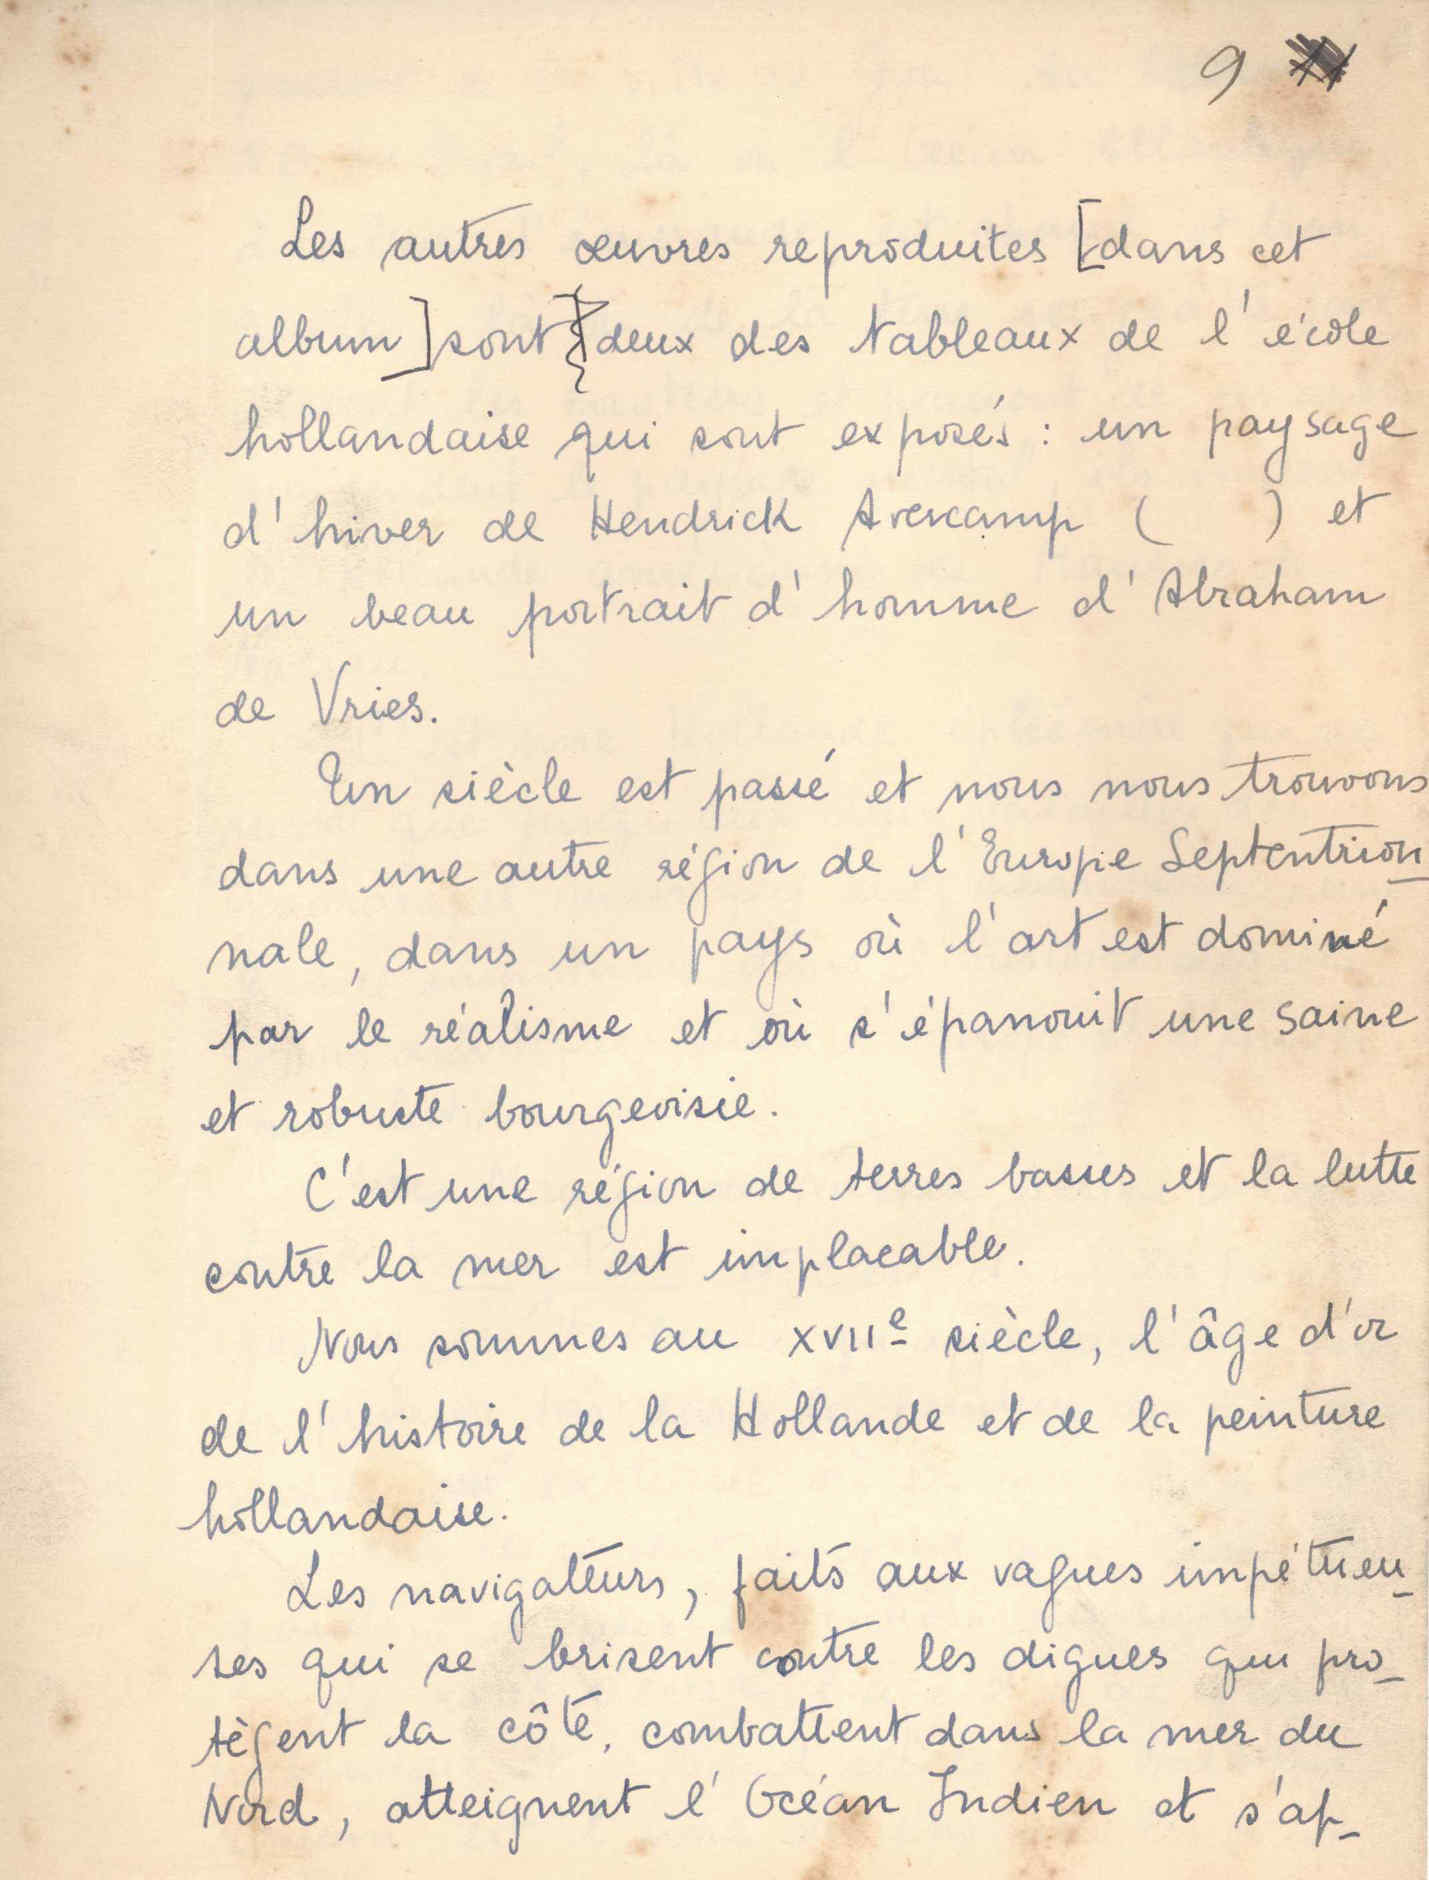 9
Les autres œuvres reproduites [dans cet
album] sont deux des tableaux de l'école
hollandaise qui sont exposés : un paysage
d'hiver de Hendrick Avercamp ( ) et
un beau portrait d'homme d'Abraham
de Vries.
Un siècle est passé et nous nous trouvons
dans une autre région de l'Europe Septentrion_
nale, dans un pays où l'art est dominé
par le réalisme et où s'épanouit une saine
et robuste bourgeoisie.
C'est une région de terres basses et la lutte
contre la mer est implacable.
Nous sommes au XVIIe siècle, l'âge d'or
de l'histoire de la Hollande et de la peinture
hollandaise.
Les navigateurs, faits aux vagues impétueu_
ses qui se brisent contre les digues qui pro_
tègent la côte, combattent dans la mer du
Nord, atteignent l'Océan Indien et s'ap_